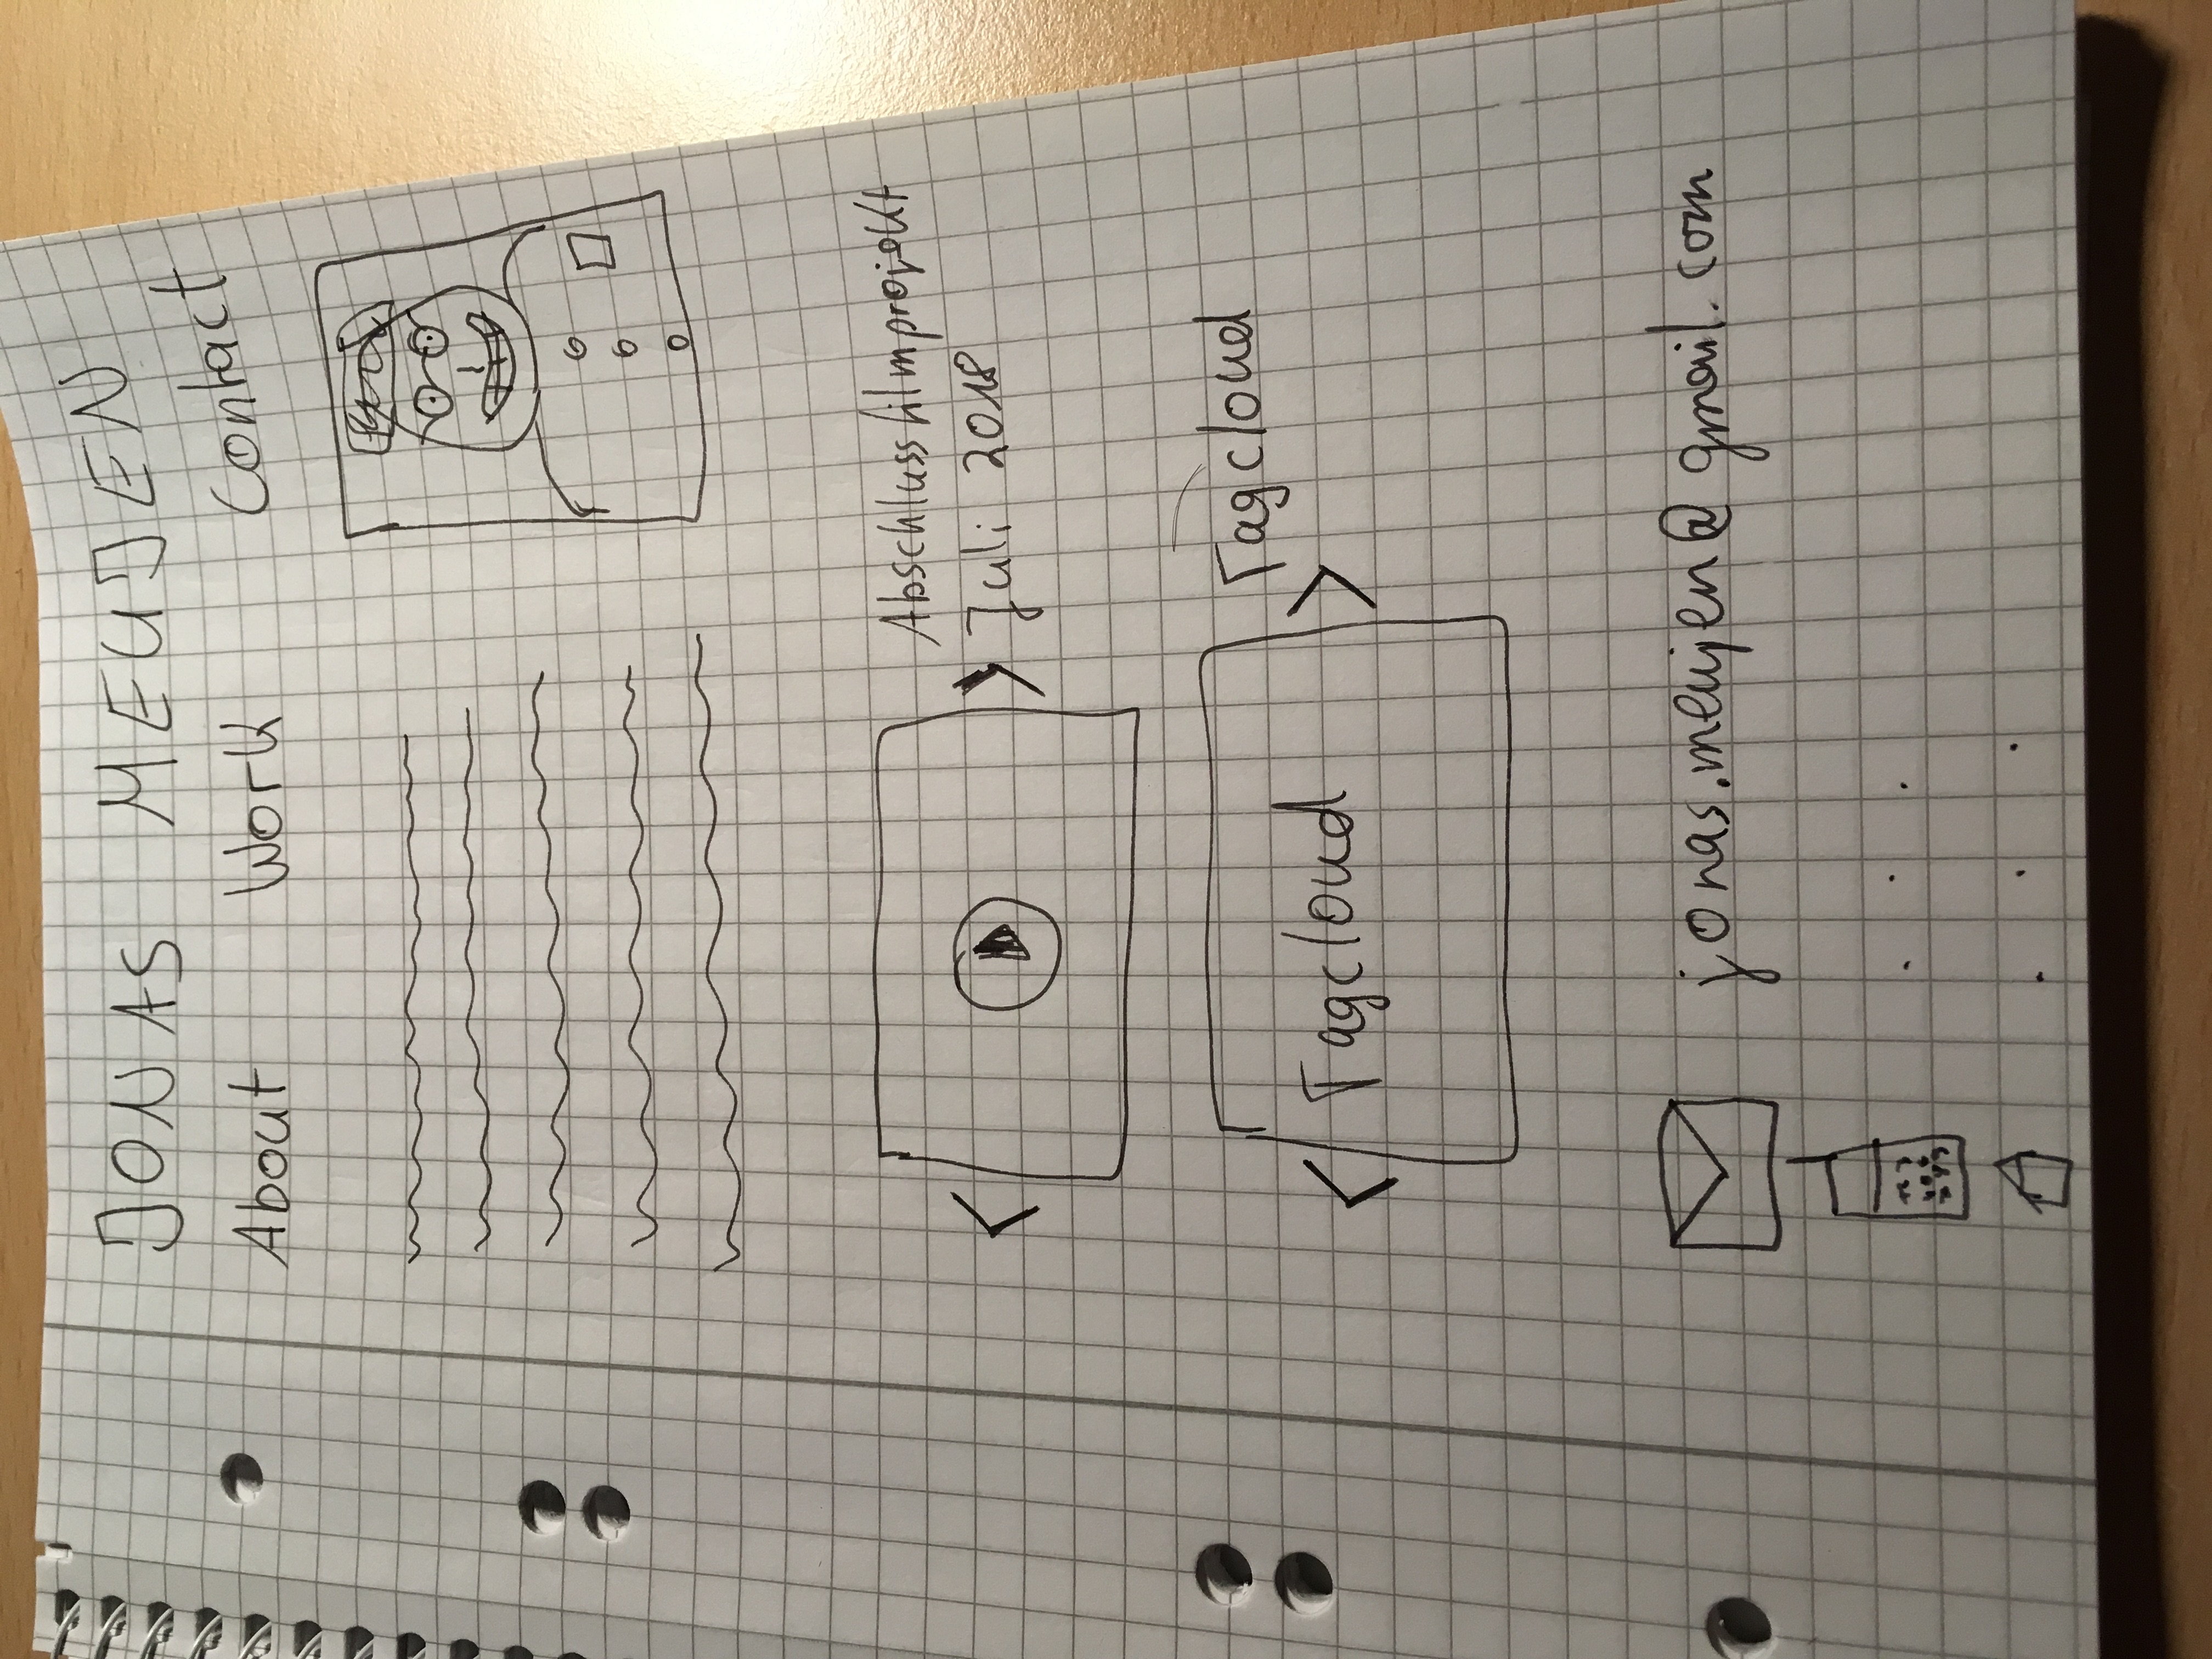 JONAS MEUJEN
About Work Contact
Abschlussfilmprojekt
Juli 2018
Tagcloud
Tagcloud
jonas.meujen@gmail.com